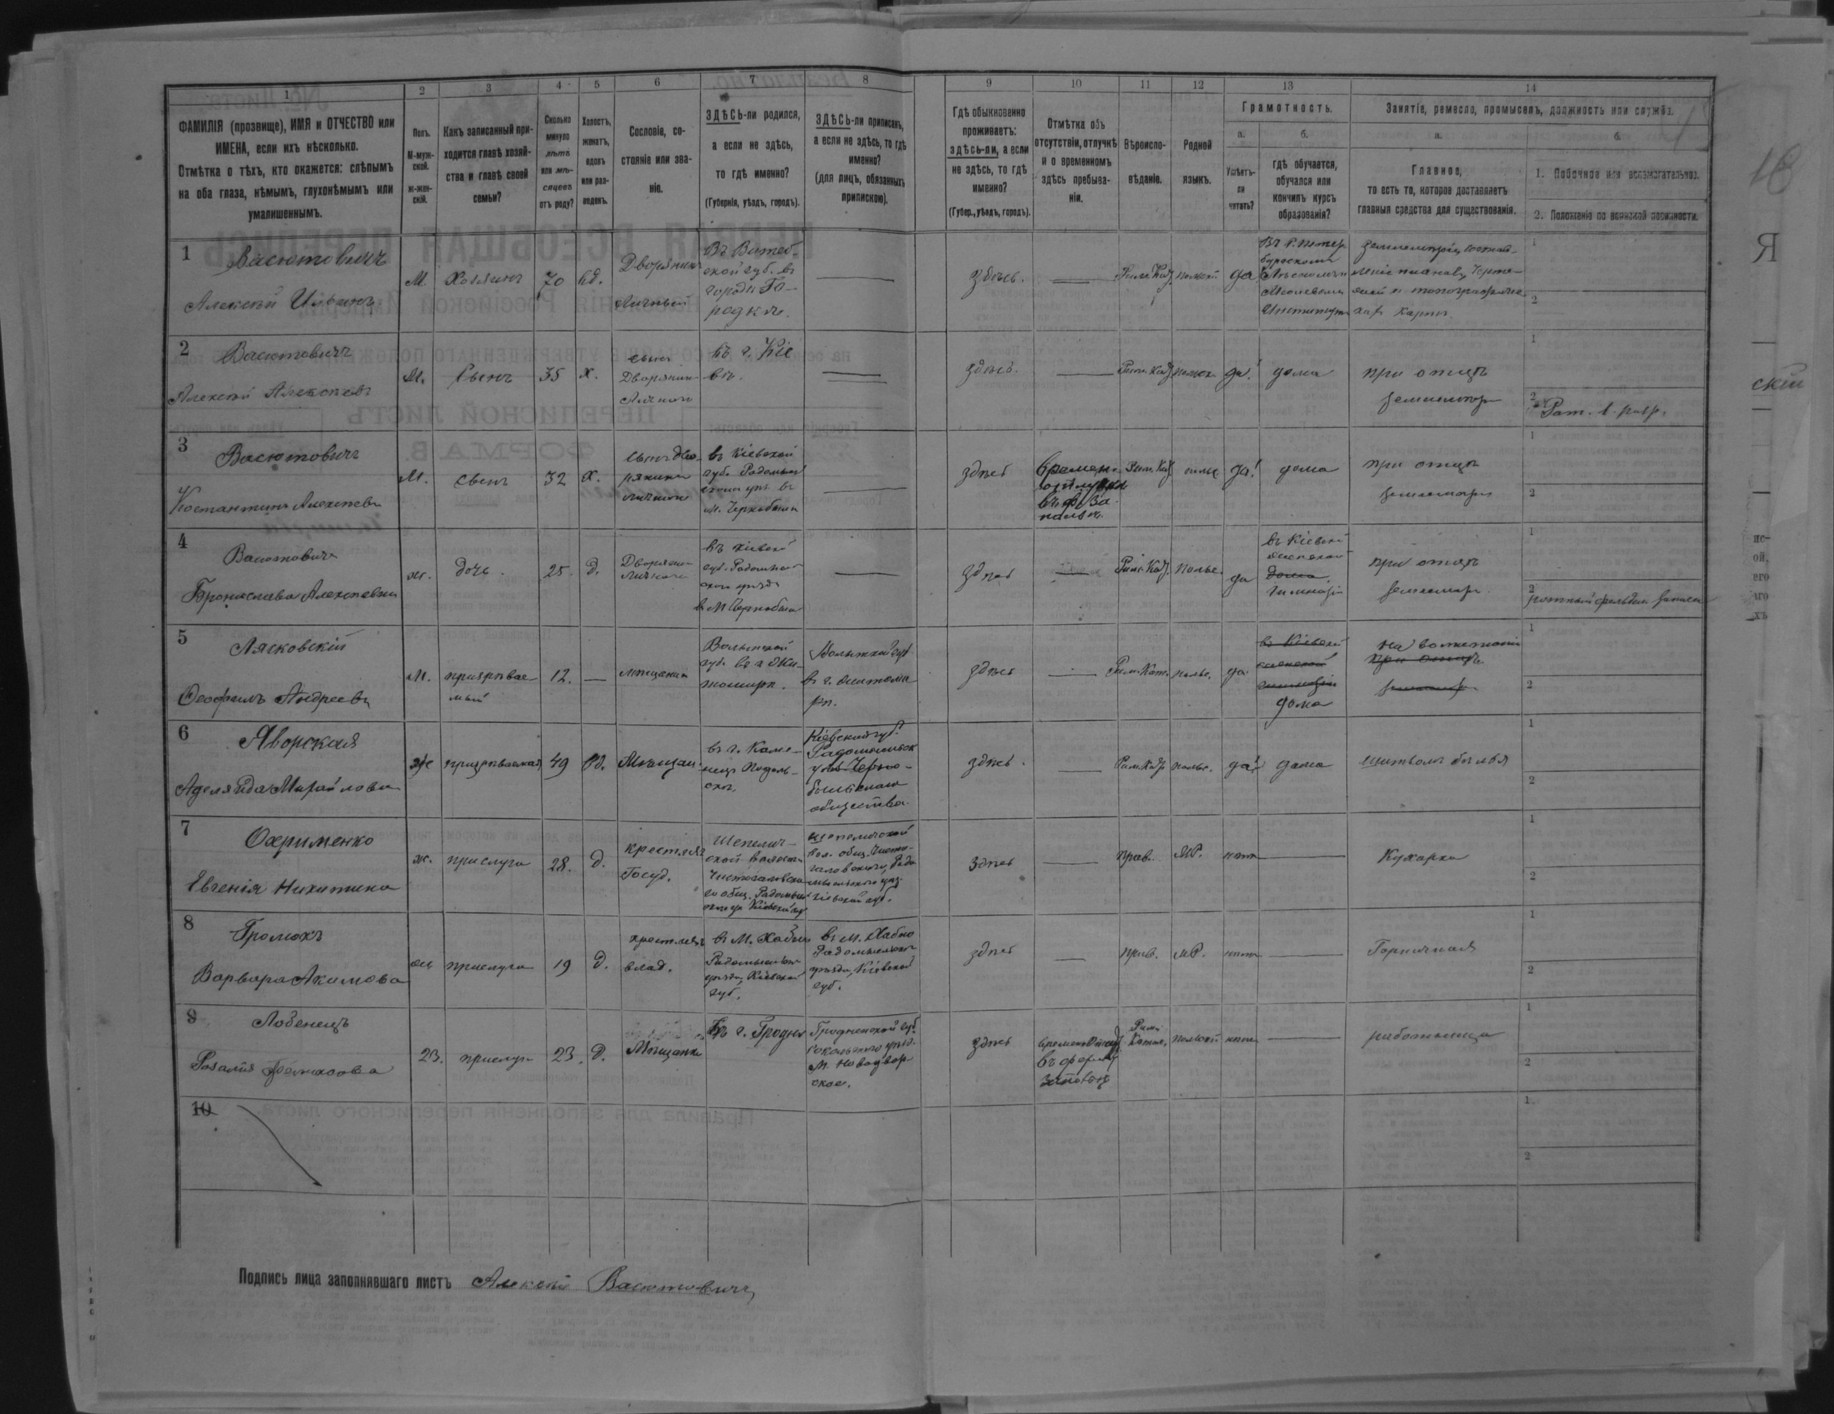 1 2 3 4 5 6 7 8 9 10 11 12 13 14
ФАМИЛІЯ (прозвище), ИМЯ и ОТЧЕСТВО или
ИМЕНА, если ихъ нѣсколько.
Отмѣтка о тѣхъ, кто окажется: слѣпымъ
на оба глаза, нѣмымъ, глухонѣмымъ или
умалишеннымъ.
Полъ.
М-муж-
ской.
ж-жен-
скій.
Какъ записанный при-
ходится главѣ хозяй-
ства и главѣ своей
семьи?
Сколько
минуло
лѣтъ
или мѣ-
сяцевъ
отъ роду?
Холостъ,
женатъ,
вдовъ
или раз-
веденъ.
Сословіе, со-
стояніе или зва-
ніе.
ЗДѢСЬ-ли родился,
а если не здѣсь,
то гдѣ именно?
(Губернія, уѣздъ, городъ).
ЗДѢСЬ-ли приписанъ,
а если не здѣсь, то гдѣ
именно?
(для лицъ, обязанныхъ
припискою).
Гдѣ обыкновенно
проживаетъ:
здѣсь-ли, а если
не здѣсь, то гдѣ
именно?
(Губер., уѣздъ, городъ).
Отмѣтка объ
отсутствіи, отлучкѣ
и о временномъ
здѣсь пребыва-
ніи.
Вѣроиспо-
вѣданіе.
Родной
языкъ.
Грамотность.
а.
Умѣетъ-
ли
читать?
б.
Гдѣ обучается,
обучался или
кончилъ курсъ
образованія?
Занятіе, ремесло, промыселъ, должность или служба.
а.
Главное,
то есть то, которое доставляетъ
главныя средства для существованія.
б.
1. Побочное или вспомогательное.
2. Положеніе по воинской повинности.
1 Васютовичъ
Алексѣй Ивановъ
М. Хозяинъ 70 вд.
Дворянинъ
Личный
Въ Витеб-
ской губ. въ
городѣ Го-
родкѣ.
здѣсь. Рим. Кат. польскій да
2 Васютовичъ
Алексѣй Алексѣевъ
М. Сынъ 35 х.
сынъ
Дворянина
Личнаго
въ г. Кіе
вѣ.
здѣсь. Рим. Кат. польск. да! дома
при отцѣ
землемѣръ
2 Рат. 1. разр.
3 Васютовичъ
Костантинъ Алексѣевъ
М. сынъ 32 х.
сынъ дво
рянина
личнаго
въ Кіевской
губ. Радомысл
въ
м. Чернобыли
здѣсь Рим. Кат. польс. да! дома
при отцѣ
землемѣръ
4 Васютовичъ
Брониславa Алексѣевна
ж. дочь. 25. д.
въ Кіевской
губ. Радомысл
уѣзда
в М Чернобыли
здѣсь Рим. Кат. польс. да
въ Кіевской
женской
дома
гимназіи
при отцѣ
землемѣръ
5 Лясковскій
Ѳеофилъ Андреевъ
М. призрѣвае
мый 12. — мѣщанин
Волынской
губ. въ г. Жи
томирѣ.
Волынской губ
въ г. Житоми
рѣ.
здѣсь Рим. Кат. польс. да
дома
6 Яворская
Аделяида Михайлова
ж призрѣваемая 49 вд. Мѣщан.
въ г. Каме-
нецъ Подоль-
скъ.
Кіевской губ.
Радомысльск
Черно-
быльскаго
общества.
здѣсь. Рим. Кат. польс. да! дома
шитьемъ бѣлья
7 Охрименко
Евгенія Никитина
ж. прислуга 28. д.
крестьян
Госуд.
Шепелич-
ской волости
Чистогаловска
го общ. Радомысл
Кіевской губ
Шепеличской
вол. общ. Чисто-
галовскаго, Радо
мысльскаго уѣз.
Кіевской губ.
здѣсь прав. МР. нетъ Кухарка
8 Громюкъ
Варвара Акимова
ж прислуга 19 д.
крестьян
влад.
въ М. Хабно
Радомысльск
уѣзда, Кіевской
губ.
въ м. Хабно
Радомысльск
уѣзда, Кіевской
губ.
здѣсь прав. МР. нетъ Горничная
9 Лобенецъ
прислуга 23. д. Мѣщанка
Въ г. Гродно
Гродненской губ.
Сокольскаго уѣзд.
М. Новодвор
ское.
здѣсь
Рим.
Катол. польскій нетъ работница
10
Подпись лица заполнявшаго листъ Алексѣй Васютовичъ